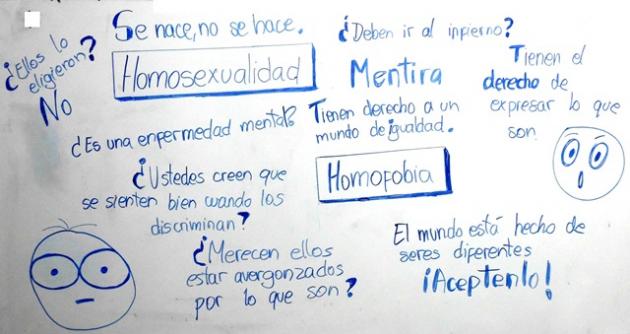 ¿Ellos lo
eligieron?
No
Se nace, no se hace.
Homosexualidad
¿Deben ir al infierno?
Mentira
Tienen el
derecho de
expresar lo que
son
¿Es una enfermedad mental?
Tienen derecho a un
mundo de igualdad.
Homofobia
¿Ustedes creen que
se sienten bien cuando los
discriminan?
¿Merecen ellos
estar avergonzados
por lo que son?
El mundo está hecho de
seres diferentes
¡Aceptenlo!